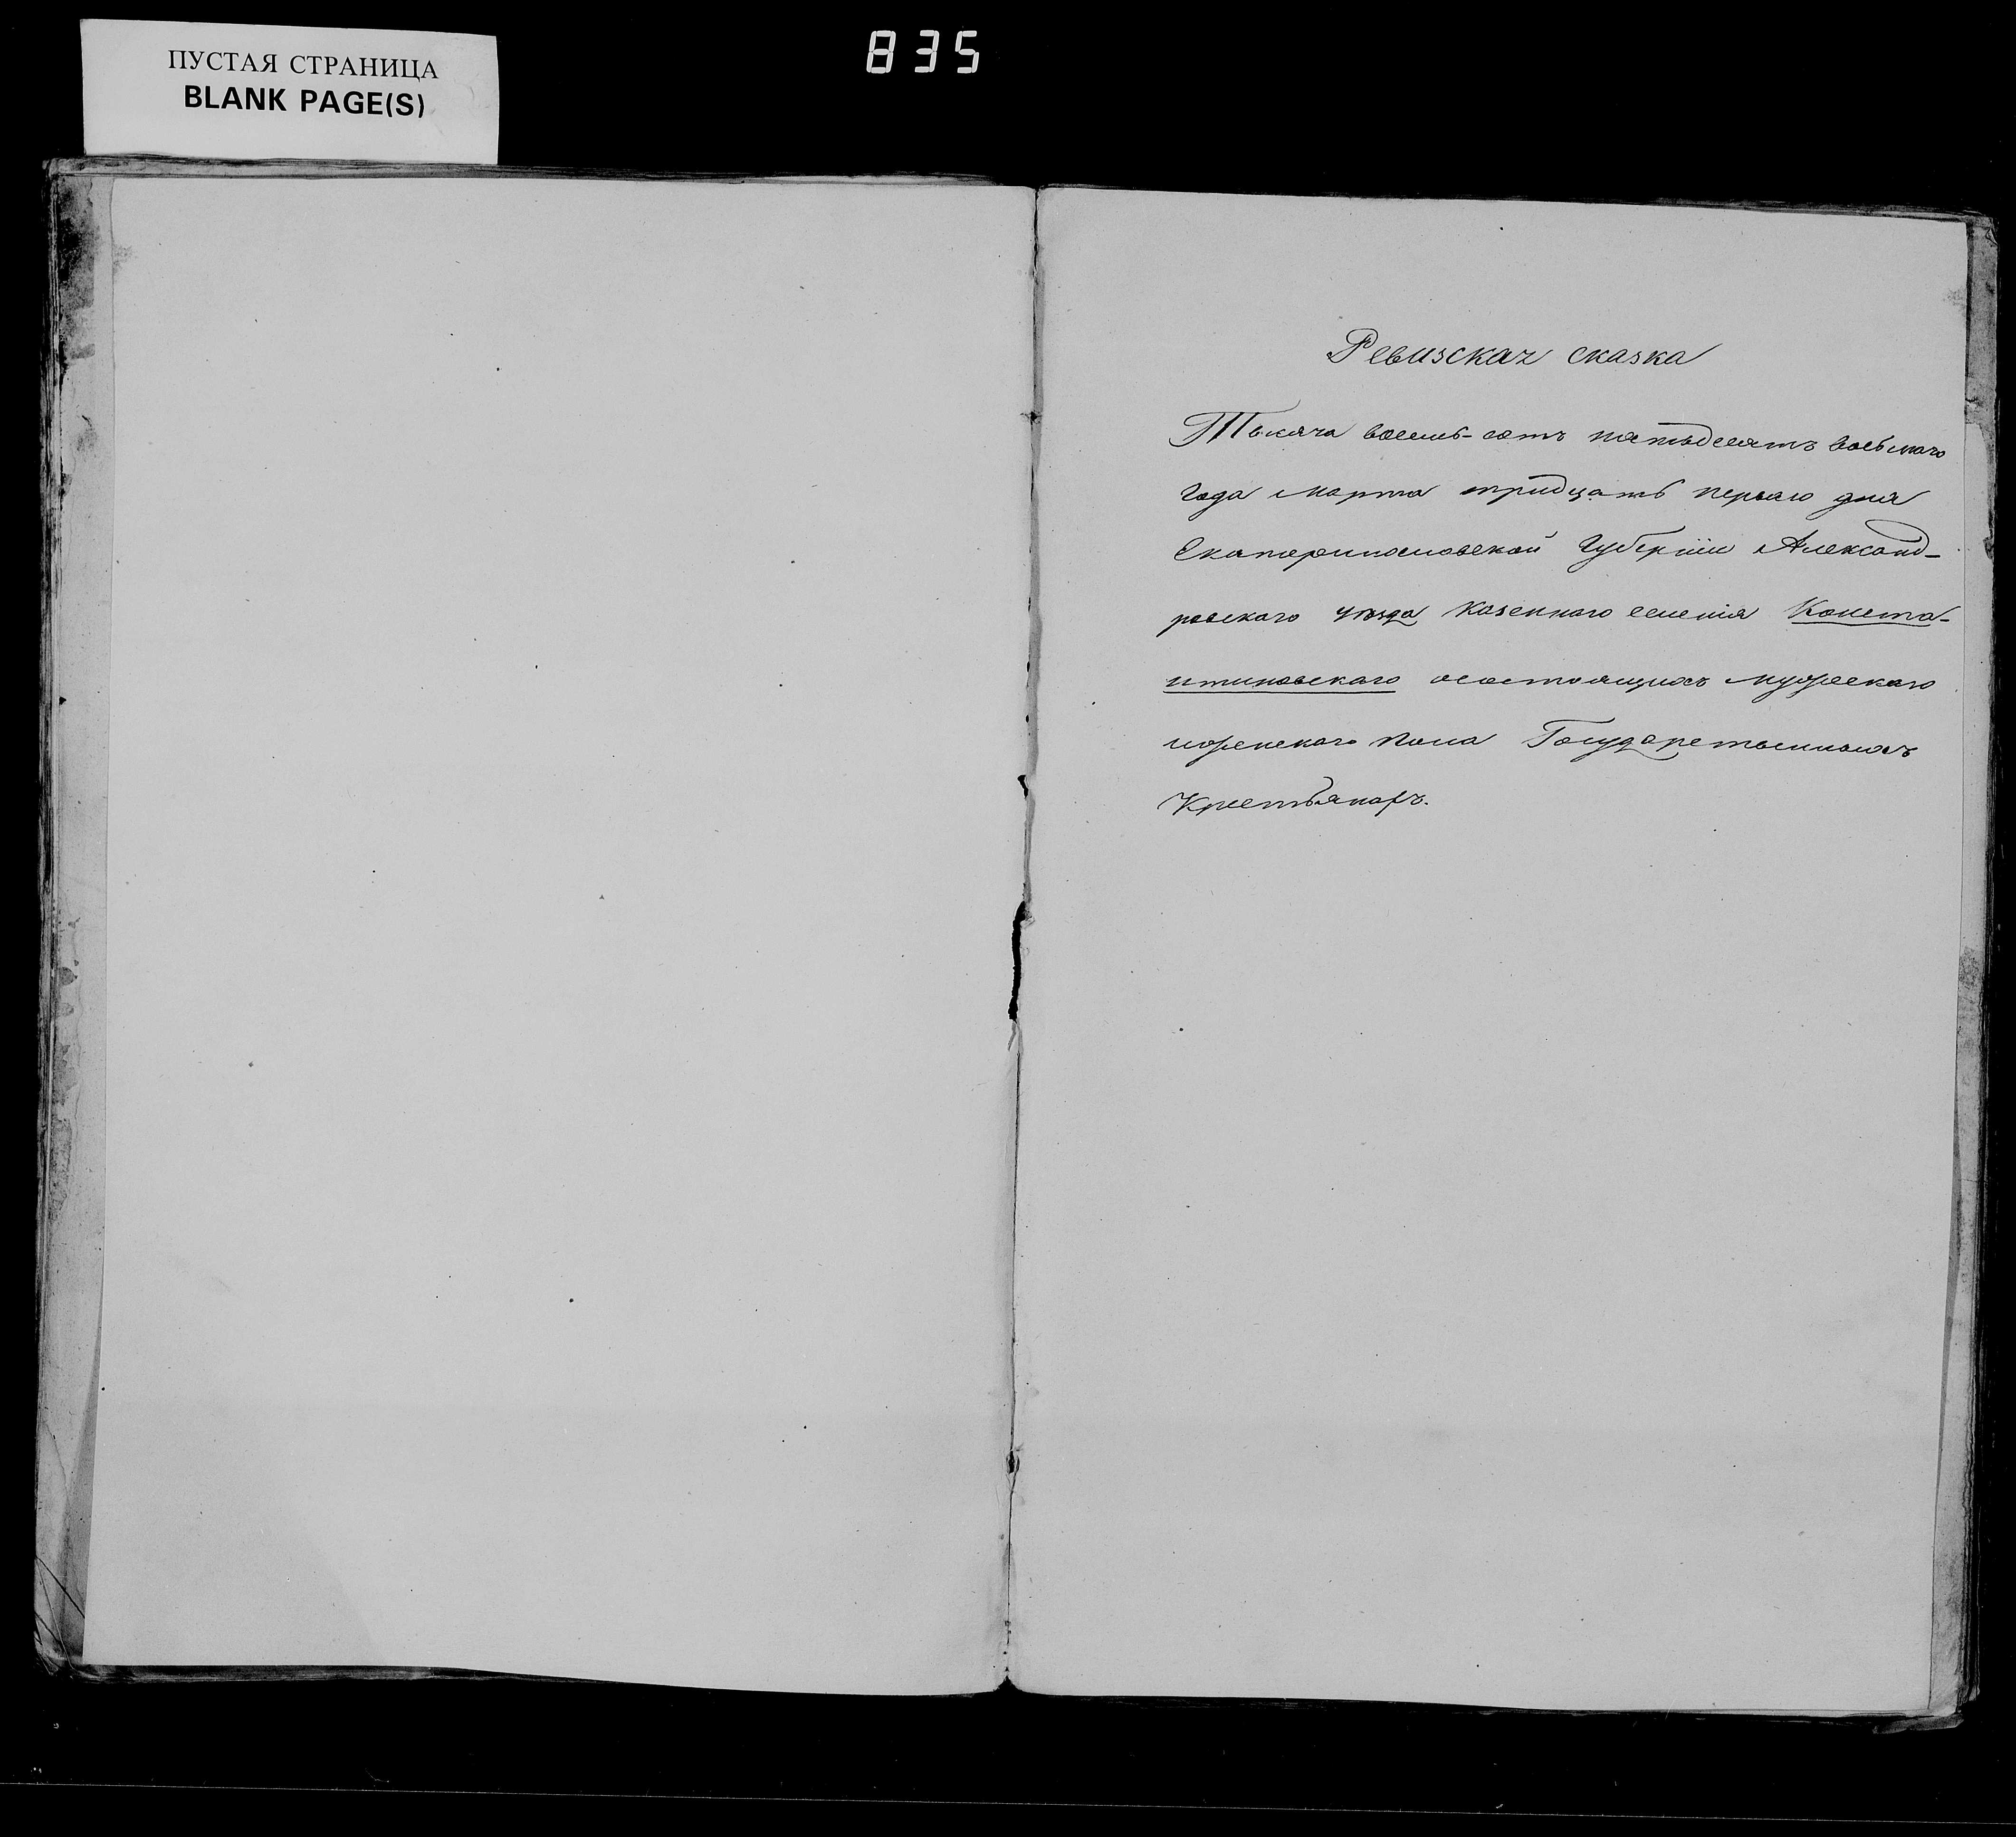 ПУСТАЯ СТРАНИЦА
BLANK PAGE(S)
835
Ревизская сказка
Тысяча восемь-сотъ пятьдесятъ восьмаго
года марта тридцать перваго дня
Екатеринославской Губерніи Александ-
ровскаго уѣзда казеннаго селенія Конста-
нтиновскаго осостоящихъ мужескаго
иженскаго пола Государственныхъ
Крестьянахъ.